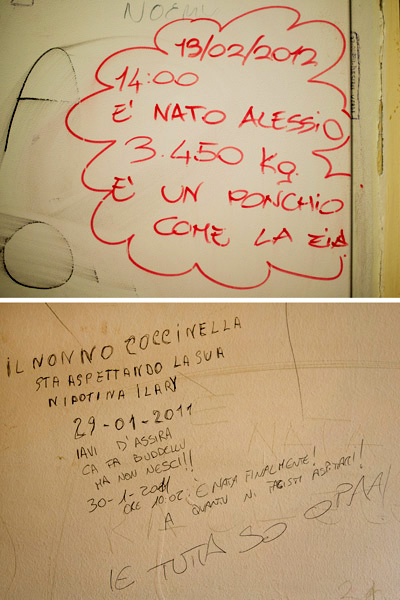 NOEMI
13/02/2012
14:00
E' NATO ALESSIO
3.450 Kg.
E' UN PONCHIO
COME LA ZIA
IL NONNO COCCINELLA
STA ASPETTANDO LA SUA
NIPOTINA ILARY
29-01-2011
IAVI D'ASSIRA
CA FA BUDDELLU
MA NON NESCI!!
30-1-2011
ORE 10:02: È NATA FINALMENTE!
A QUANTU NI FACISTI ASPITARI!
IE TUTTA SO OPAA!